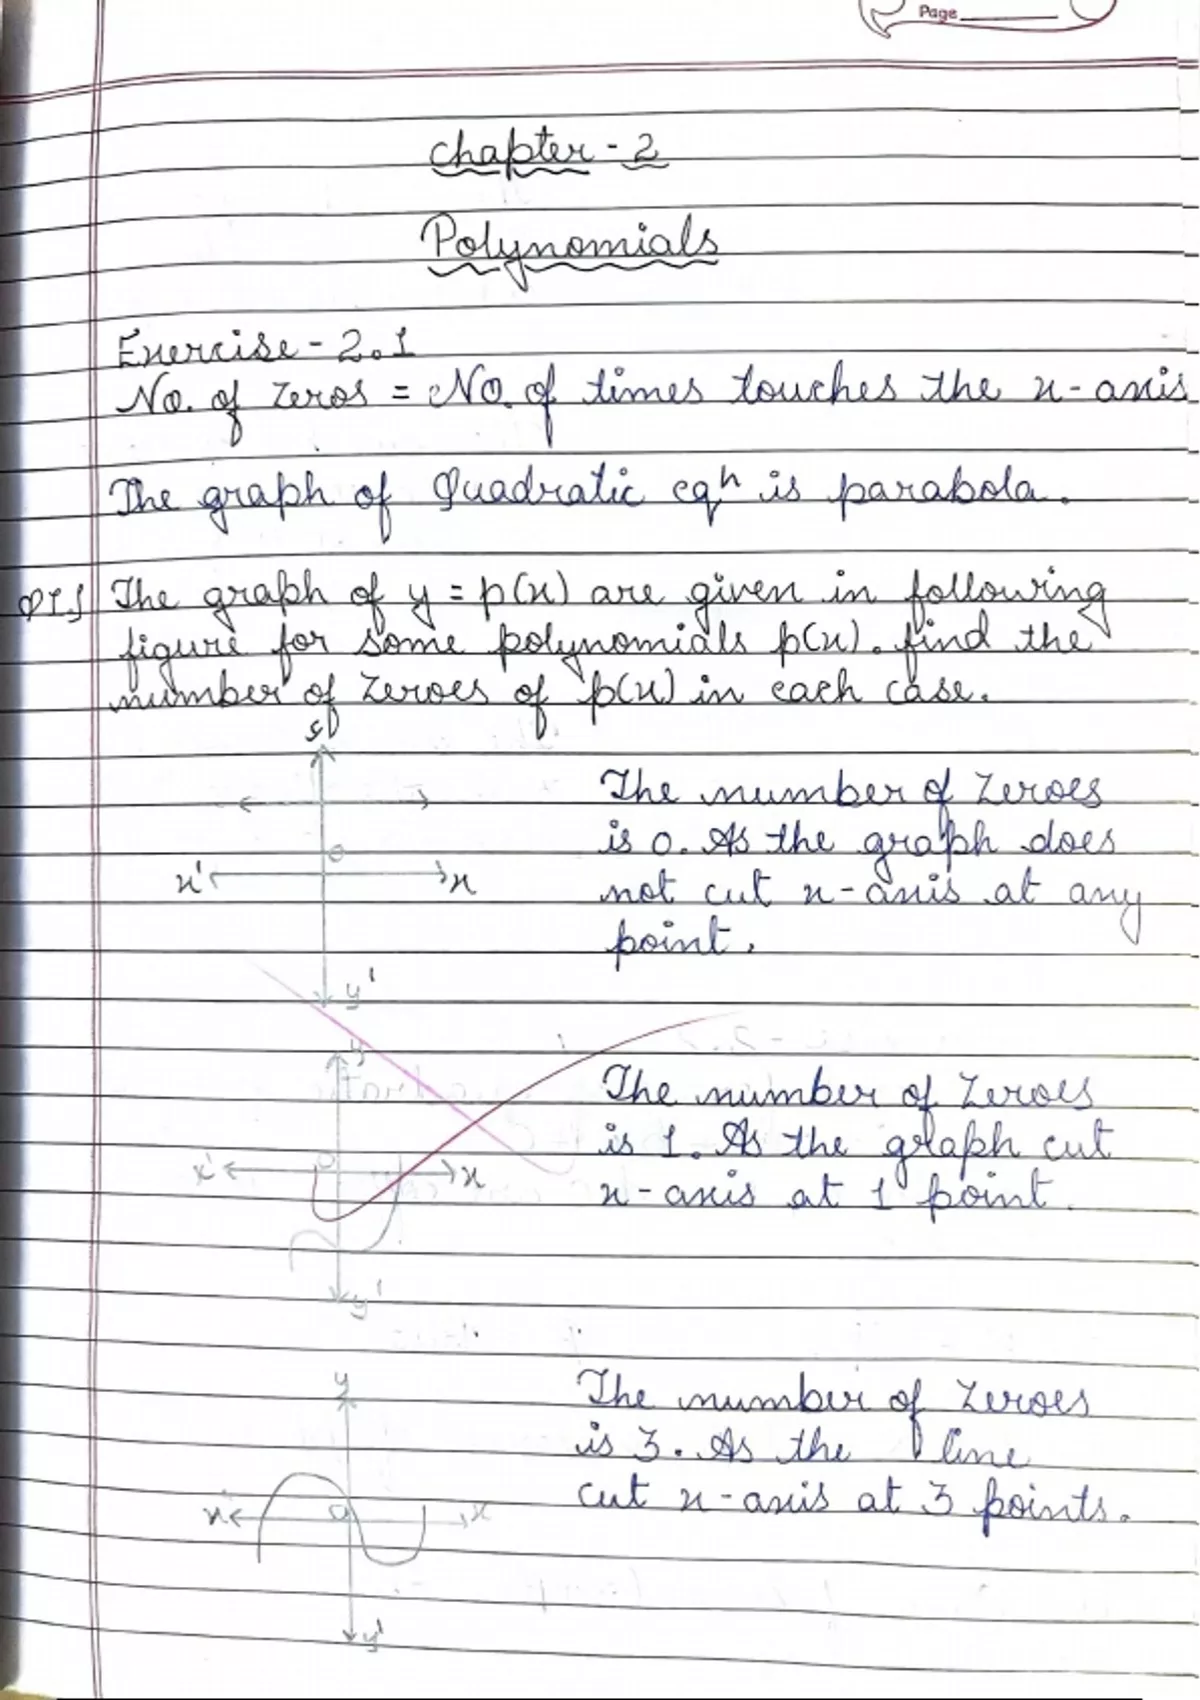 Page
Chapter - 2
Polynomials
Exercise - 2.1
No. of Zeros = No. of times touches the x-axis
The graph of Quadratic eqn is parabola.
Q1} The graph of y = p(x) are given in following
figure for some polynomials p(x). find the
number of Zeroes of p(x) in each case.
y
The number of Zeroes
is 0. As the graph does
not cut x-axis at any
point.
O
x' x
y'
y
The number of Zeroes
is 1. As the graph cut
x-axis at 1 point.
O
x' x
y'
y
The number of Zeroes
is 3. As the line
cut x-axis at 3 points.
x' O x
y'